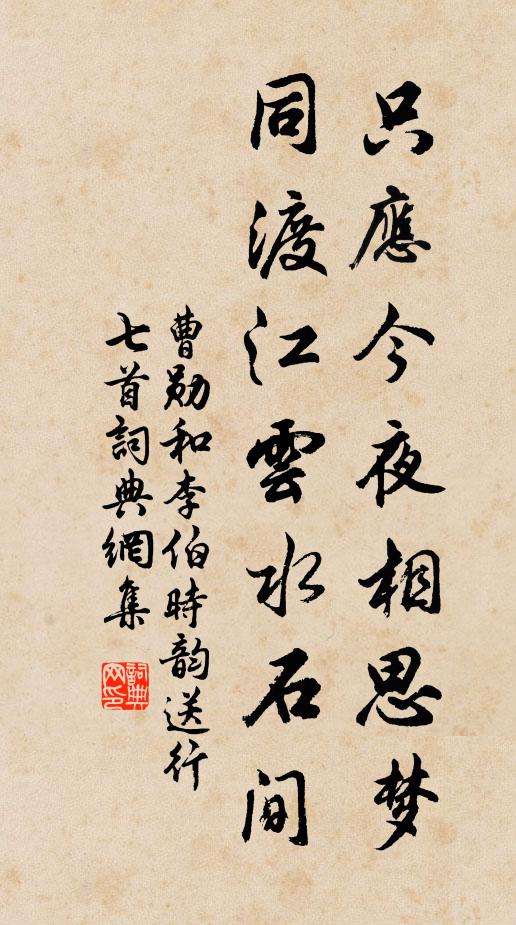 只應今夜相思梦
同渡江雲水石间
曹勛和李伯時韵送行
七首詞典網集
詞典
网印